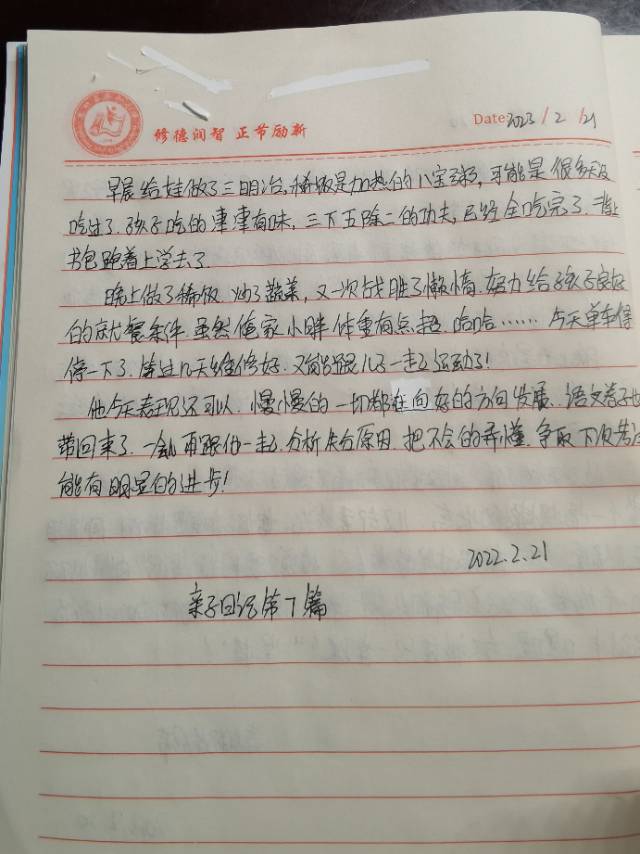 修德润智 正节励新
Date: 2023/2/21
早晨给娃做了三明冶,稀饭是加热的八宝粥,可能是很多天没
吃过了.孩子吃的津津有味,三下五除二的功夫,已经全吃完了.背上
书包跑着上学去了.
晚上做了稀饭.炒了蔬菜,又一次战胜了懒惰.努力给孩子良好
的就餐条件.虽然俺家小胖体重有点超.哈哈……今天单车停
停一下了.等过几天维修好.又能跟儿子一起运动了!
他今天表现还可以.慢慢的一切都在向好的方向发展.语文卷子也
带回来了.一会再跟他一起分析失分原因.把不会的弄懂.争取下次考试
能有明显的进步!
2022.2.21
亲子日记第7篇